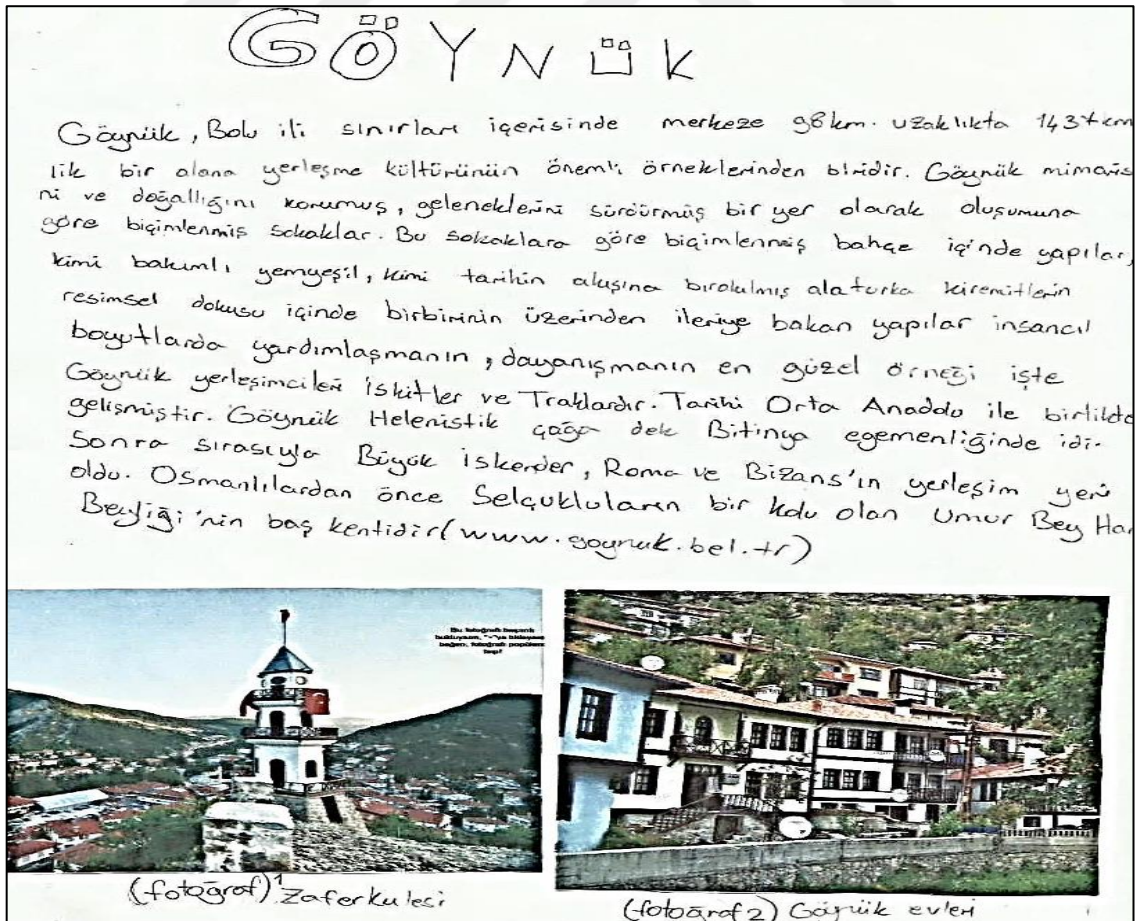 GÖYNÜK
Göynük, Bolu ili sınırları içerisinde merkeze 98 km. uzaklıkta 1437 km
lik bir alana yerleşme kültürünün önemli örneklerinden biridir. Göynük mimaris
ni ve doğallığını korumuş, geleneklerini sürdürmüş bir yer olarak oluşumuna
göre biçimlenmiş sokaklar. Bu sokaklara göre biçimlenmiş bahçe içinde yapılar,
kimi bakımlı yemyeşil, kimi tarihin akışına bırakılmış alaturka kiremitlerin
resimsel dokusu içinde birbirinin üzerinden ileriye bakan yapılar insancıl
boyutlarda yardımlaşmanın, dayanışmanın en güzel örneği işte
Göynük yerleşimcileri İskitler ve Traklardır. Tarihi Orta Anadolu ile birlikte
gelişmiştir. Göynük Helenistik çağa dek Bitinya egemenliğinde idi.
Sonra sırasıyla Büyük İskender, Roma ve Bizans'ın yerleşim yeri
oldu. Osmanlılardan önce Selçukluların bir kolu olan Umur Bey Han
Beyliği'nin baş kentidir(www.goynuk.bel.tr)
Bu fotoğrafı başarılı
(fotoğraf)1 Zafer kulesi
(fotoğraf 2) Göynük evleri